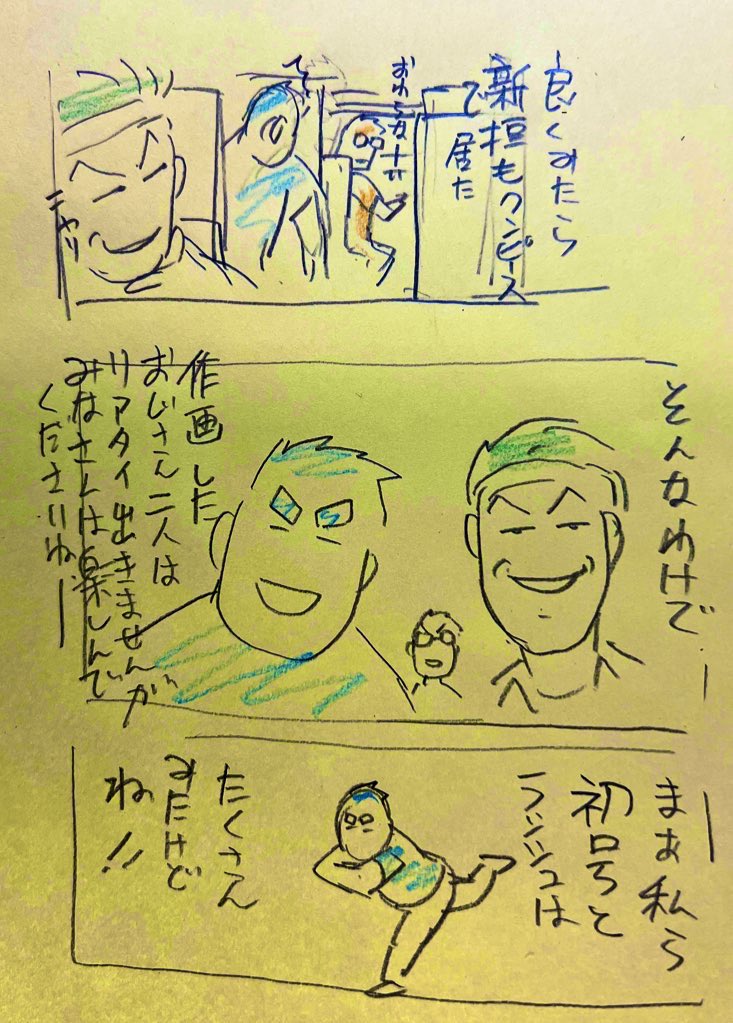 良くみたら
新垣もワンピース
で居た
おわらカナ!!
ニヤリ
そんなわけで
作画した
おじさん二人は
リアタイ出きませんが
みなさんは楽しんで
くださいねー
まあ私ら
初号と
ラッシュは
たくさん
みたけど
ね!!